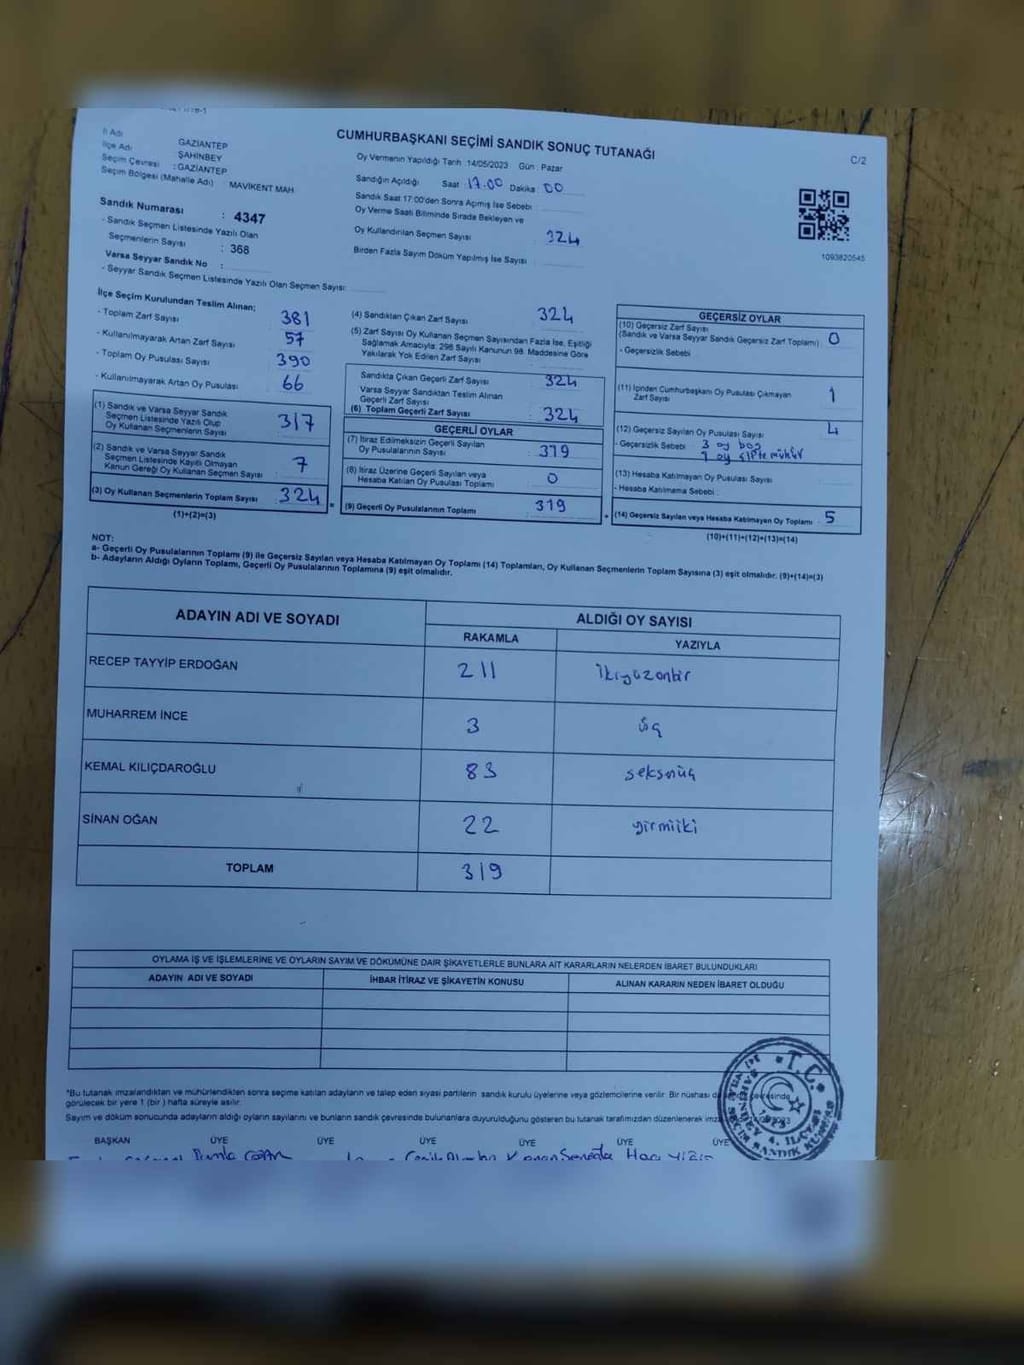 CUMHURBAŞKANI SEÇİMİ SANDIK SONUÇ TUTANAĞI
C/2
İl Adı GAZİANTEP
İlçe Adı ŞAHİNBEY
Seçim Çevresi : GAZİANTEP
Seçim Bölgesi (Mahalle Adı) MAVİKENT MAH
Sandık Numarası : 4347
- Sandık Seçmen Listesinde Yazılı Olan
Seçmenlerin Sayısı : 368
Varsa Seyyar Sandık No :
- Seyyar Sandık Seçmen Listesinde Yazılı Olan Seçmen Sayısı:
Oy Vermenin Yapıldığı Tarih 14/05/2023 Gün : Pazar
Sandığın Açıldığı Saat : 17.00 Dakika : 00
Sandık Saat 17:00'den Sonra Açımış İse Sebebi :
Oy Verme Saati Bitiminde Sırada Bekleyen ve
Oy Kullandırılan Seçmen Sayısı : 324
Birden Fazla Sayım Döküm Yapılmış İse Sayısı :
1093820545
İlçe Seçim Kurulundan Teslim Alınan;
- Toplam Zarf Sayısı : 381
- Kullanılmayarak Artan Zarf Sayısı : 57
- Toplam Oy Pusulası Sayısı : 390
- Kullanılmayarak Artan Oy Pusulası : 66
(1) Sandık ve Varsa Seyyar Sandık
Seçmen Listesinde Yazılı Olup
Oy Kullanan Seçmenlerin Sayısı : 317
(2) Sandık ve Varsa Seyyar Sandık
Seçmen Listesinde Kayıtlı Olmayan
Kanun Gereği Oy Kullanan Seçmen Sayısı : 7
(3) Oy Kullanan Seçmenlerin Toplam Sayısı : 324
(1)+(2)=(3)
(4) Sandıktan Çıkan Zarf Sayısı : 324
(5) Zarf Sayısı Oy Kullanan Seçmen Sayısından Fazla İse, Eşitliği
Sağlamak Amacıyla: 298 Sayılı Kanunun 98. Maddesine Göre
Yakılarak Yok Edilen Zarf Sayısı :
Sandıkta Çıkan Geçerli Zarf Sayısı : 324
Varsa Seyyar Sandıktan Teslim Alınan
Geçerli Zarf Sayısı :
(6) Toplam Geçerli Zarf Sayısı : 324
GEÇERLİ OYLAR
(7) İtiraz Edilmeksizin Geçerli Sayılan
Oy Pusulalarının Sayısı : 319
(8) İtiraz Üzerine Geçerli Sayılan veya
Hesaba Katılan Oy Pusulası Toplamı : 0
(9) Geçerli Oy Pusulalarının Toplamı : 319
GEÇERSİZ OYLAR
(10) Geçersiz Zarf Sayısı
(Sandık ve Varsa Seyyar Sandık Geçersiz Zarf Toplamı) : 0
- Geçersizlik Sebebi :
(11) İçinden Cumhurbaşkanı Oy Pusulası Çıkmayan
Zarf Sayısı : 1
(12) Geçersiz Sayılan Oy Pusulası Sayısı : 4
- Geçersizlik Sebebi : 3 oy boş
1 oy çifte mühür
(13) Hesaba Katılmayan Oy Pusulası Sayısı :
- Hesaba Katılmama Sebebi :
(14) Geçersiz Sayılan veya Hesaba Katılmayan Oy Toplamı : 5
(10)+(11)+(12)+(13)=(14)
NOT:
a- Geçerli Oy Pusulalarının Toplamı (9) ile Geçersiz Sayılan veya Hesaba Katılmayan Oy Toplamı (14) Toplamları, Oy Kullanan Seçmenlerin Toplam Sayısına (3) eşit olmalıdır. (9)+(14)=(3)
b- Adayların Aldığı Oyların Toplamı, Geçerli Oy Pusulalarının Toplamına (9) eşit olmalıdır.
ADAYIN ADI VE SOYADI ALDIĞI OY SAYISI
RAKAMLA YAZIYLA
RECEP TAYYİP ERDOĞAN 211 ikiyüzonbir
MUHARREM İNCE 3 üç
KEMAL KILIÇDAROĞLU 83 seksenüç
SİNAN OĞAN 22 yirmiiki
TOPLAM 319
OYLAMA İŞ VE İŞLEMLERİNE VE OYLARIN SAYIM VE DÖKÜMÜNE DAİR ŞİKAYETLERLE BUNLARA AİT KARARLARIN NELERDEN İBARET BULUNDUKLARI
ADAYIN ADI VE SOYADI İHBAR İTİRAZ VE ŞİKAYETİN KONUSU ALINAN KARARIN NEDEN İBARET OLDUĞU
*Bu tutanak imzalandıktan ve mühürlendikten sonra seçime katılan adayların ve talep eden siyasi partilerin sandık kurulu üyelerine veya gözlemcilerine verilir. Bir nüshası da çevresinde
görülecek bir yere 1 (bir) hafta süreyle asılır.
Sayım ve döküm sonucunda adayların aldığı oyların sayılarını ve bunların sandık çevresinde bulunanlara duyurulduğunu gösteren bu tutanak tarafımızdan düzenlenerek imza
BAŞKAN ÜYE ÜYE ÜYE ÜYE ÜYE ÜYE
T.C.